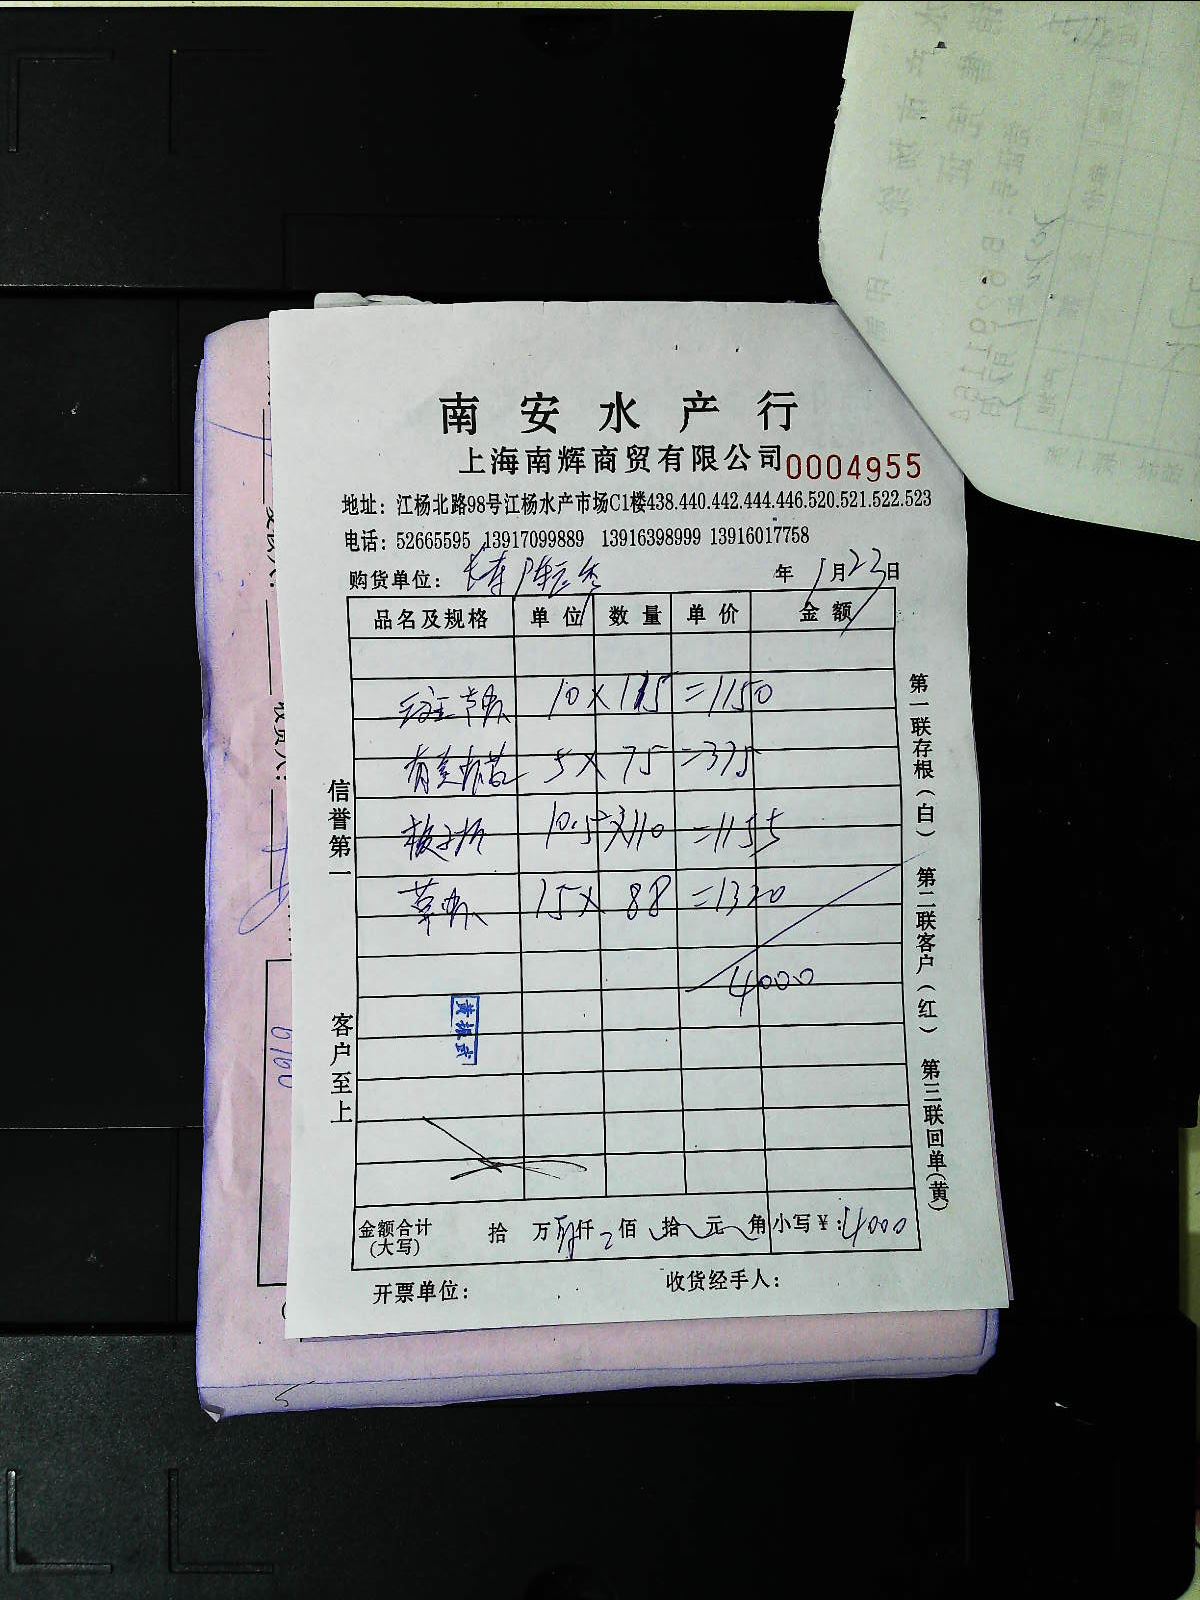 南安水产行
上海南辉商贸有限公司 0004955
地址：江杨北路98号江杨水产市场C1楼438.440.442.444.446.520.521.522.523
电话：52665595 13917099889 13916398999 13916017758
购货单位： 年 1月23日
品名及规格 单位 数量 单价 金额
10×115=1150
5×75=375
10.5×110=1155
草虾 15×88=1320
4000
黄振武
金额合计(大写) 拾 万 肆仟 佰 拾 元 角 小写￥：4000
开票单位： 收货经手人：
信誉第一
客户至上
第一联存根(白) 第二联客户(红) 第三联回单(黄)